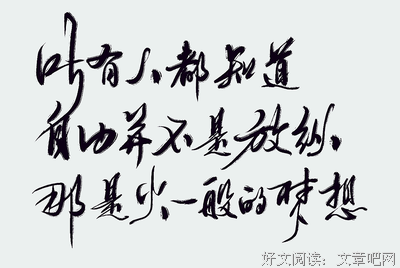 所有人都知道
自由并不是放纵
那是火一般的梦想
好文阅读：文章吧网